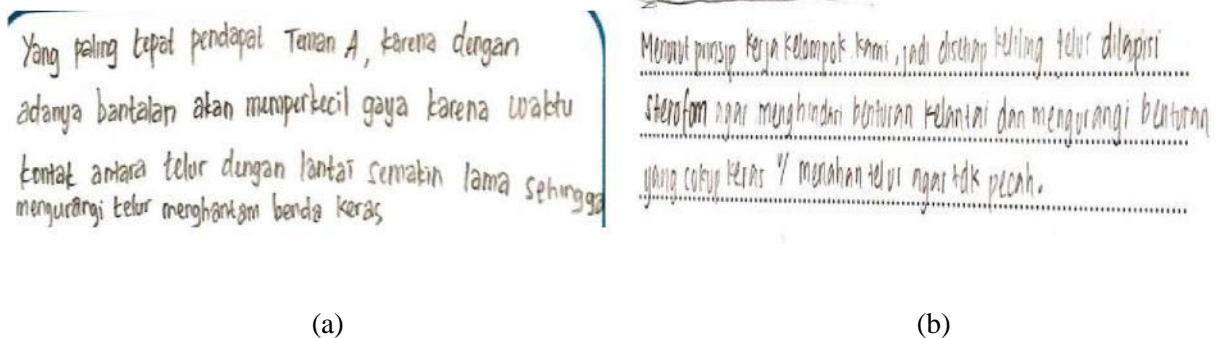 Yang paling tepat pendapat Teman A, karena dengan
adanya bantalan akan memperkecil gaya karena waktu
kontak antara telur dengan lantai semakin lama sehingga
mengurangi telur menghantam benda keras
(a)
Menurut prinsip kerja kelompok kami, jadi disetiap keliling telur dilapisi
sterofom agar menghindari benturan kelantai dan mengurangi benturan
yang cukup keras u/ menahan telur agar tdk pecah.
(b)